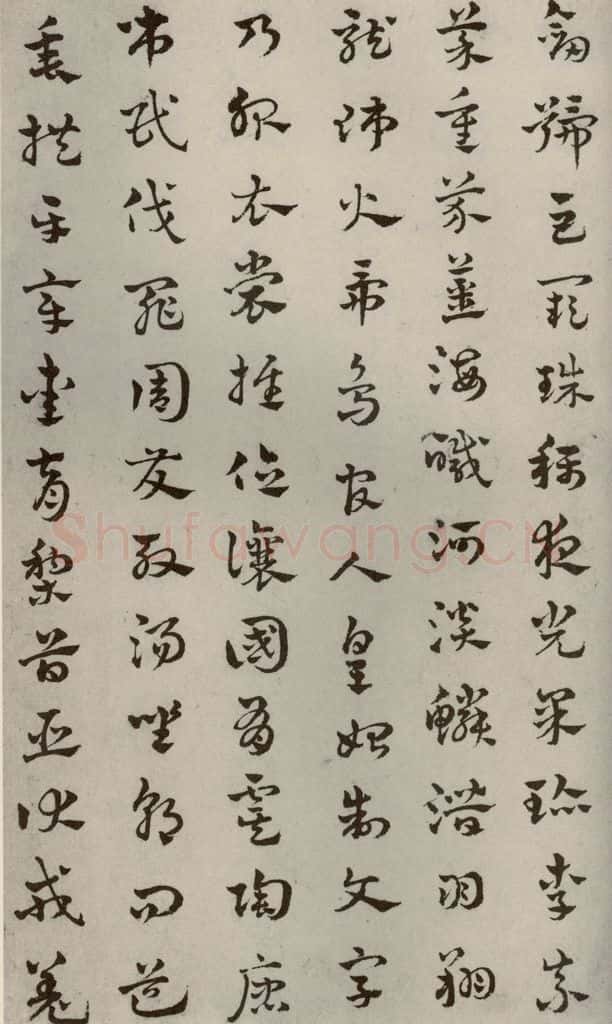 劍號巨闕珠稱夜光果珎李柰
菜重芥薑海鹹河淡鱗潛羽翔
龍師火帝鳥官人皇始制文字
乃服衣裳推位讓國有虞陶唐
弔民伐罪周發殷湯坐朝問道
垂拱平章愛育黎首臣伏戎羌
Shufawang.CN